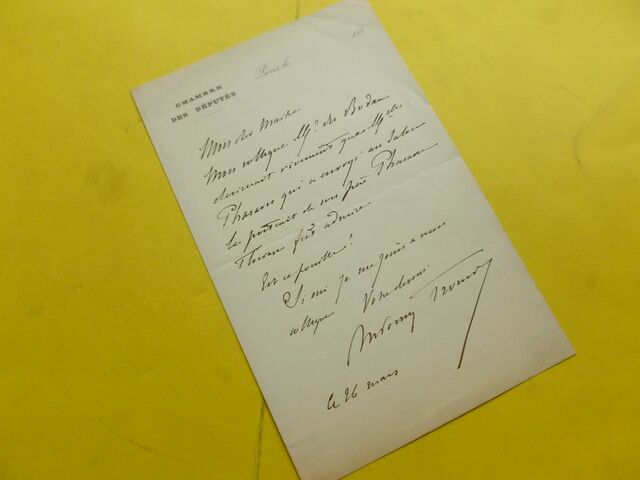 CHAMBRE
DES DÉPUTÉS
Paris le 188
Mon cher Maître
Mon collègue Mr du Bodan
désirerait vivement que Mr de
Pharaon qui a envoyé au Salon
le portrait de son père Pharaon
Florian fut admise
Est ce possible?
Si oui je me joins à mon
collègue Votre dévoué
Antonin Proust
le 26 mars